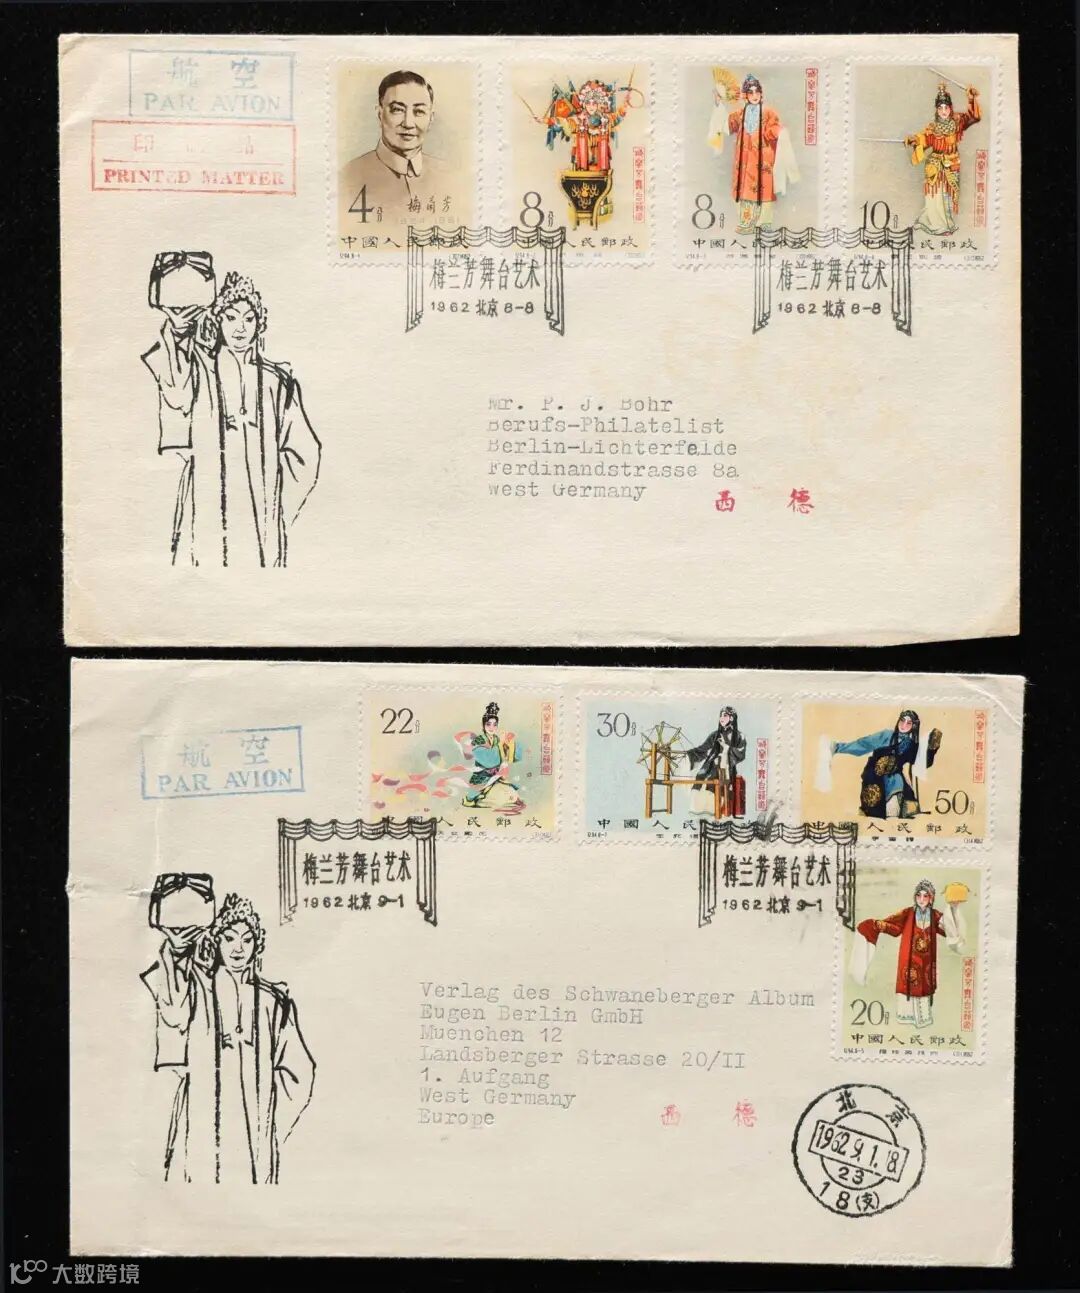 航空
PAR AVION
印
PRINTED MATTER
4分
梅蘭芳
中國人民郵政
8分
8分
中國人民郵政
10分
中國人民郵政
梅兰芳舞台艺术
1962 北京 8-8
梅兰芳舞台艺术
1962 北京 8-8
Mr. P. J. Bohr
Berufs-Philatelist
Berlin-Lichterfelde
Ferdinandstrasse 8a
West Germany
西德
航空
PAR AVION
22分
30分
中國人民郵政
50分
中國人民郵政
梅兰芳舞台艺术
1962 北京 9-1
梅兰芳舞台艺术
1962 北京 9-1
20分
中國人民郵政
Verlag des Schwaneberger Album
Eugen Berlin GmbH
Muenchen 12
Landsberger Strasse 20/II
1. Aufgang
West Germany
Europe
西德
北京
1962.9.1.18
23
18(支)
大数跨境